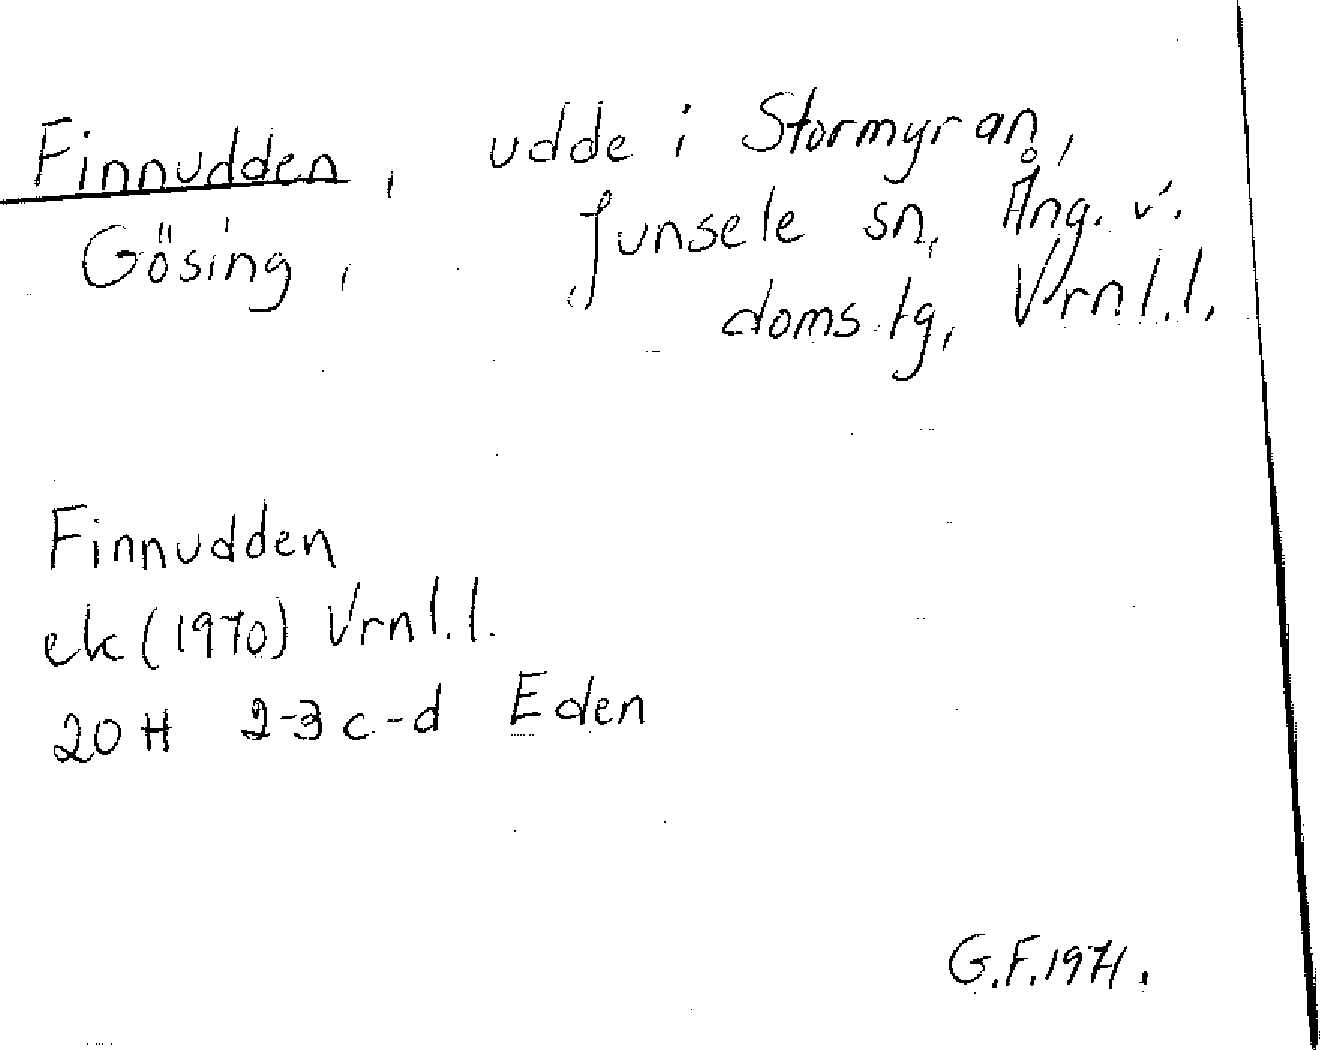 Finnudden, udde i Stormyran,
Gösing, Junsele sn, Ång. v.
doms.tg, Vrnl.l.
Finnudden
ek (1970) Vrnl.l.
20 H 2-3 c-d Eden
G.F. 1971.